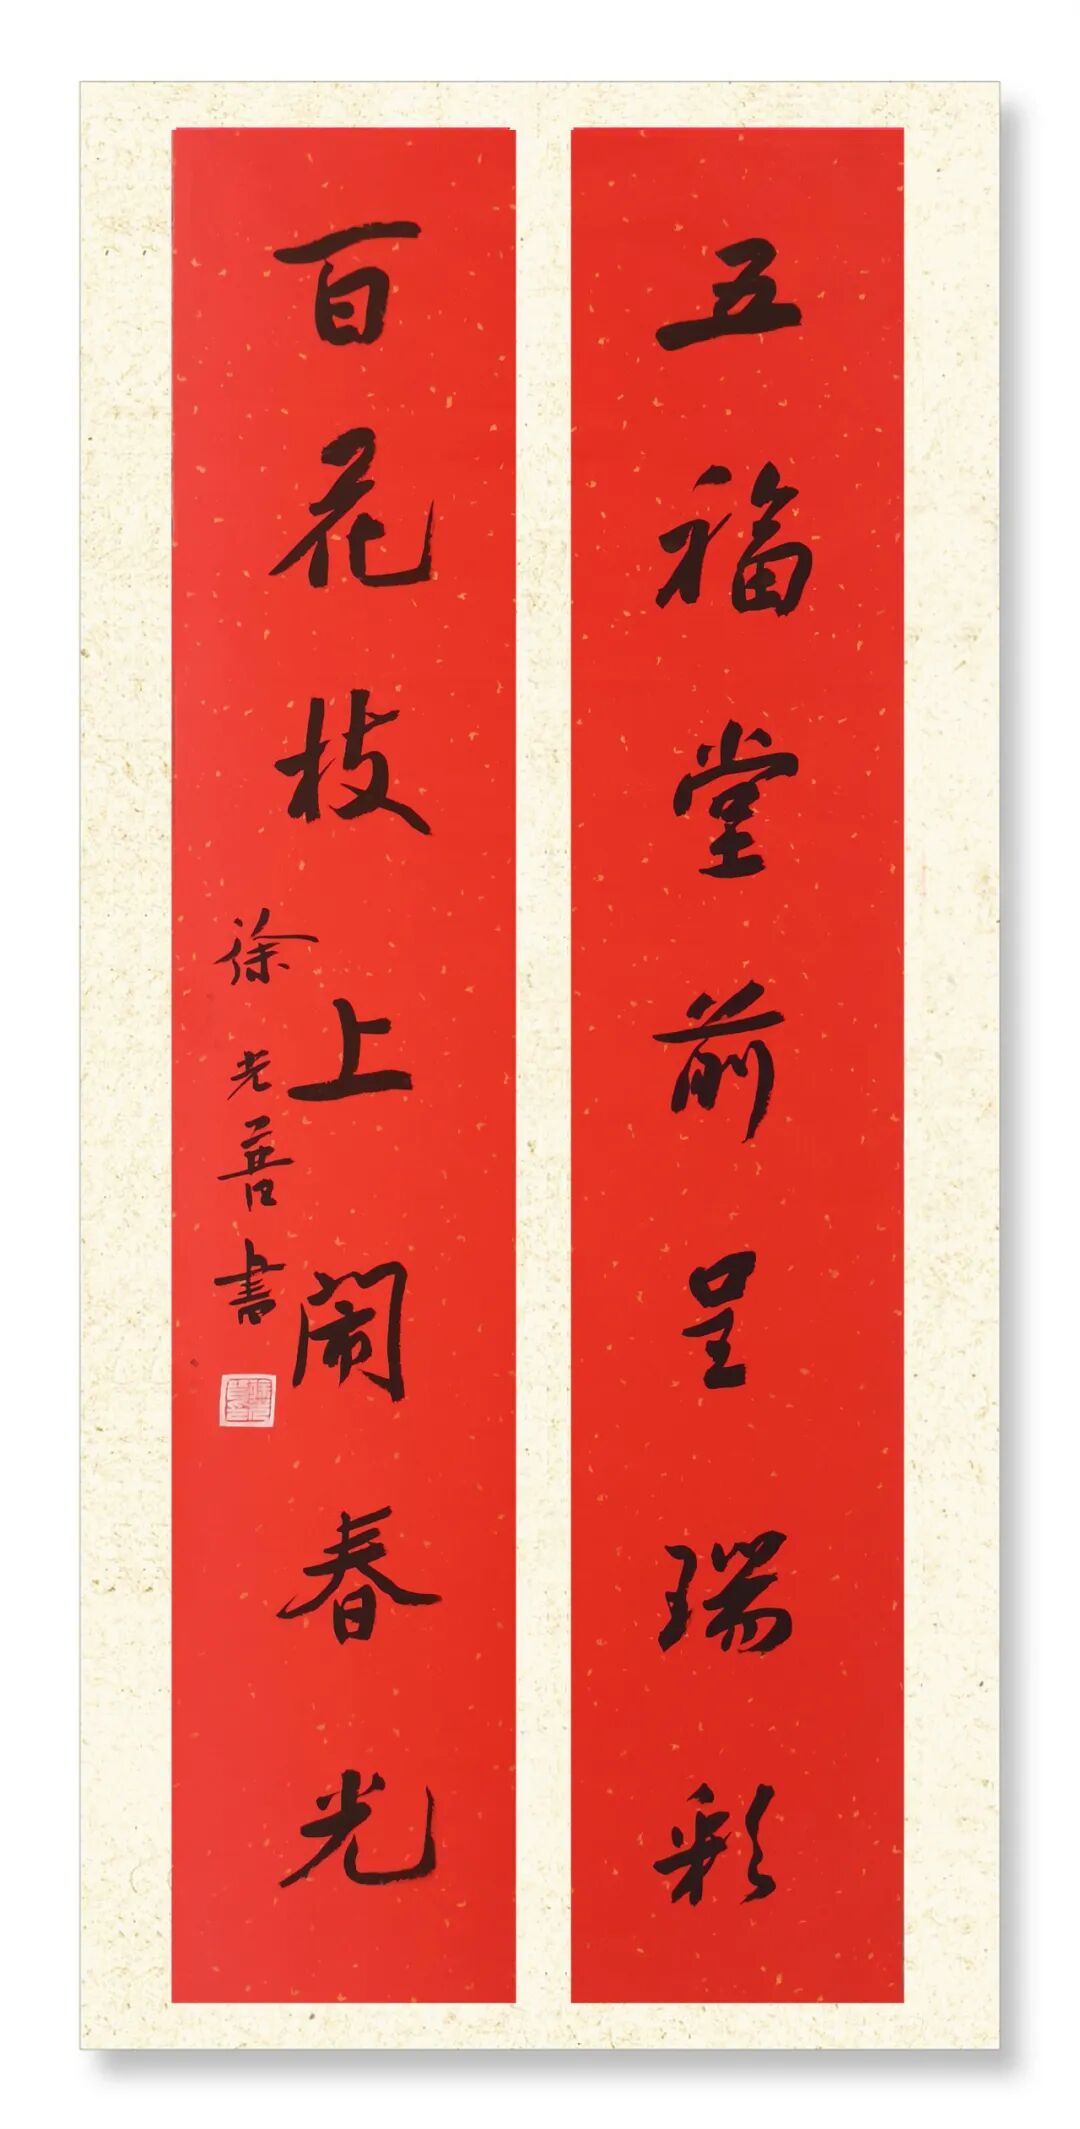 五福堂前呈瑞彩
百花枝上闹春光
徐光善書